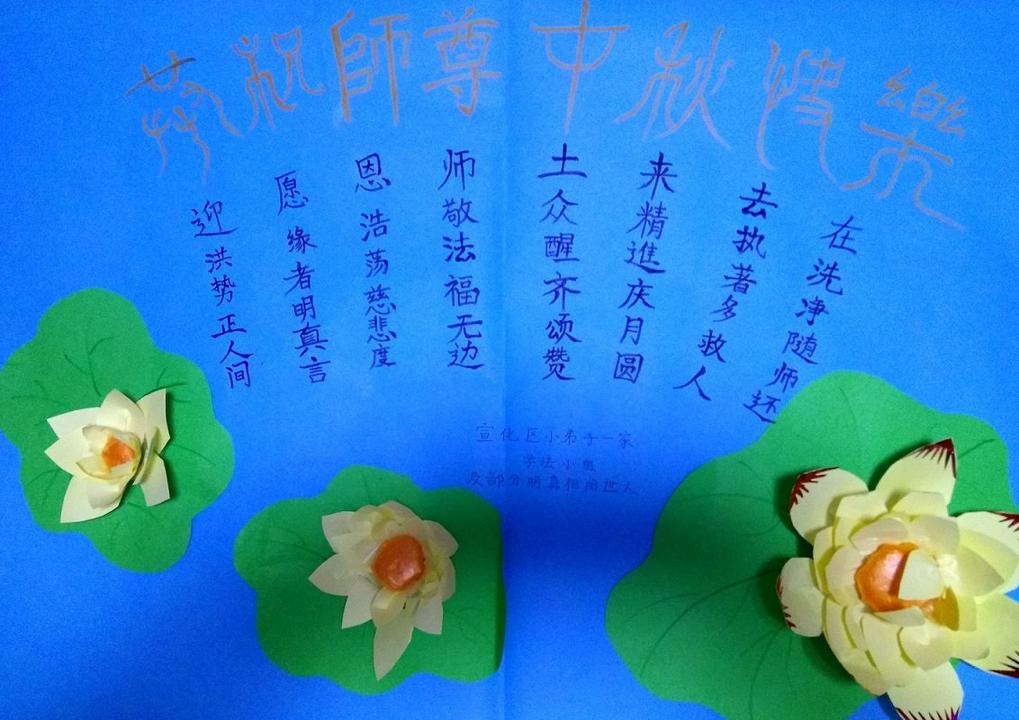 恭祝師尊中秋快樂
迎洪势正人间
愿缘者明真言
恩浩荡慈悲度
师敬法福无边
土众醒齐颂赞
来精進庆月圆
去执著多救人
在洗净随师还
宣化区小弟子一家
学法小组
及部分明真相的世人